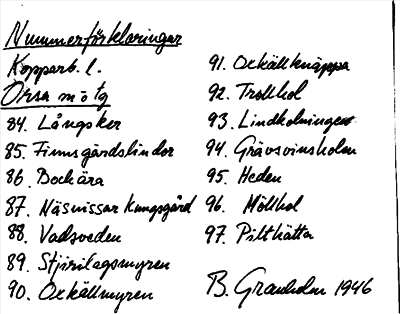 Nummerförklaringar
Kopparb. l.
Orsa m o tg
84. Långsker
85. Finnsgårdslindor
86. Bockära
87. Näsnissar kungsgård
88. Vadsveden
89. Stjirilagsmyren
90. Oxkällmyren
91. Oxkällknäppa
92. Trollhol
93. Lindholningen
94. Grävsvinsholm
95. Heden
96. Möllhol
97. Pilthätta
B. Granholm 1946